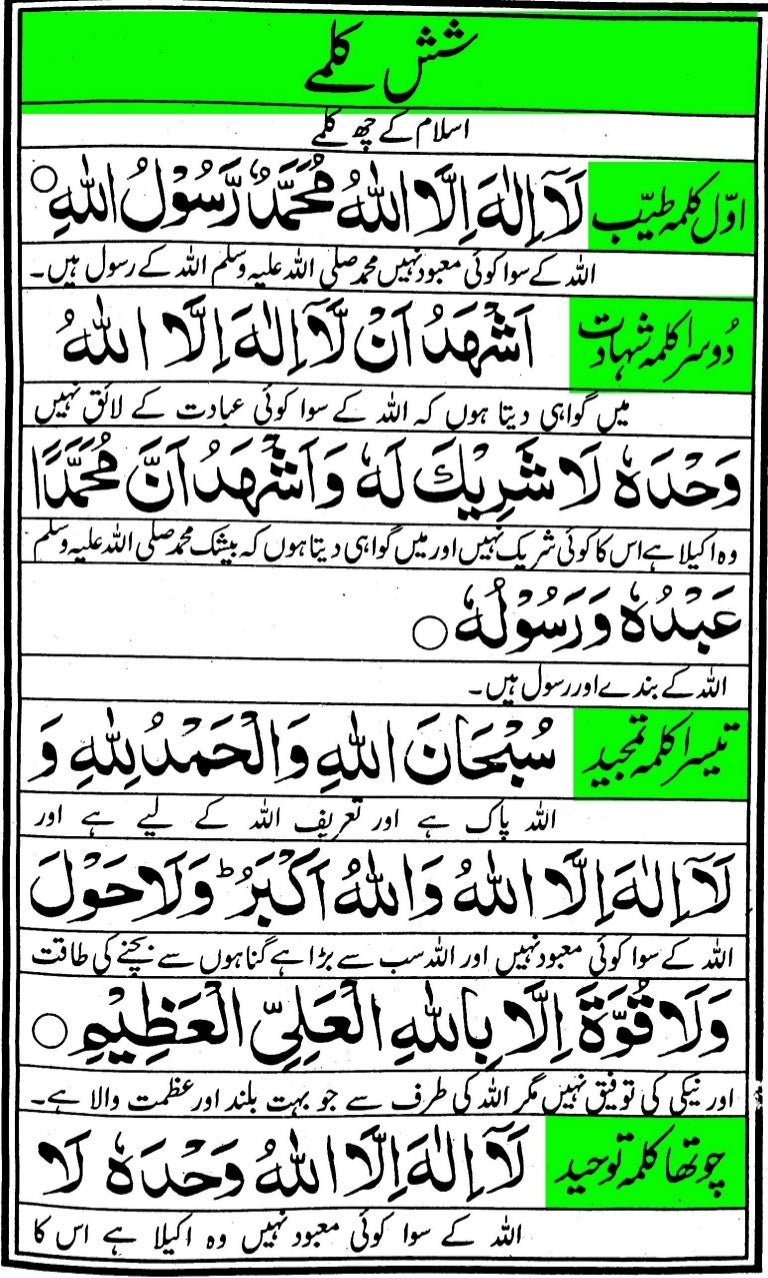 شش کلمے
اسلام کے چھ کلمے
اوّل کلمہ طیّب لَآ اِلٰهَ اِلَّا اللّٰهُ مُحَمَّدٌ رَّسُوْلُ اللّٰهِ ○
اللہ کے سوا کوئی معبود نہیں محمد صلی اللہ علیہ وسلم اللہ کے رسول ہیں۔
دُوسرا کلمہ شہادت اَشْهَدُ اَنْ لَّآ اِلٰهَ اِلَّا اللّٰهُ
میں گواہی دیتا ہوں کہ اللہ کے سوا کوئی عبادت کے لائق نہیں
وَحْدَهٗ لَا شَرِيْكَ لَهٗ وَاَشْهَدُ اَنَّ مُحَمَّدًا
وہ اکیلا ہے اس کا کوئی شریک نہیں اور میں گواہی دیتا ہوں کہ بیشک محمد صلی اللہ علیہ وسلم
عَبْدُهٗ وَرَسُوْلُهٗ ○
اللہ کے بندے اور رسول ہیں۔
تیسرا کلمہ تمجید سُبْحَانَ اللّٰهِ وَالْحَمْدُ لِلّٰهِ وَ
اللہ پاک ہے اور تعریف اللہ کے لیے ہے اور
لَآ اِلٰهَ اِلَّا اللّٰهُ وَاللّٰهُ اَكْبَرُ ؕ وَلَا حَوْلَ
اللہ کے سوا کوئی معبود نہیں اور اللہ سب سے بڑا ہے گناہوں سے بچنے کی طاقت
وَلَا قُوَّةَ اِلَّا بِاللّٰهِ الْعَلِيِّ الْعَظِيْمِ ○
اور نیکی کی توفیق نہیں مگر اللہ کی طرف سے جو بہت بلند اور عظمت والا ہے۔
چوتھا کلمہ توحید لَآ اِلٰهَ اِلَّا اللّٰهُ وَحْدَهٗ لَا
اللہ کے سوا کوئی معبود نہیں وہ اکیلا ہے اس کا